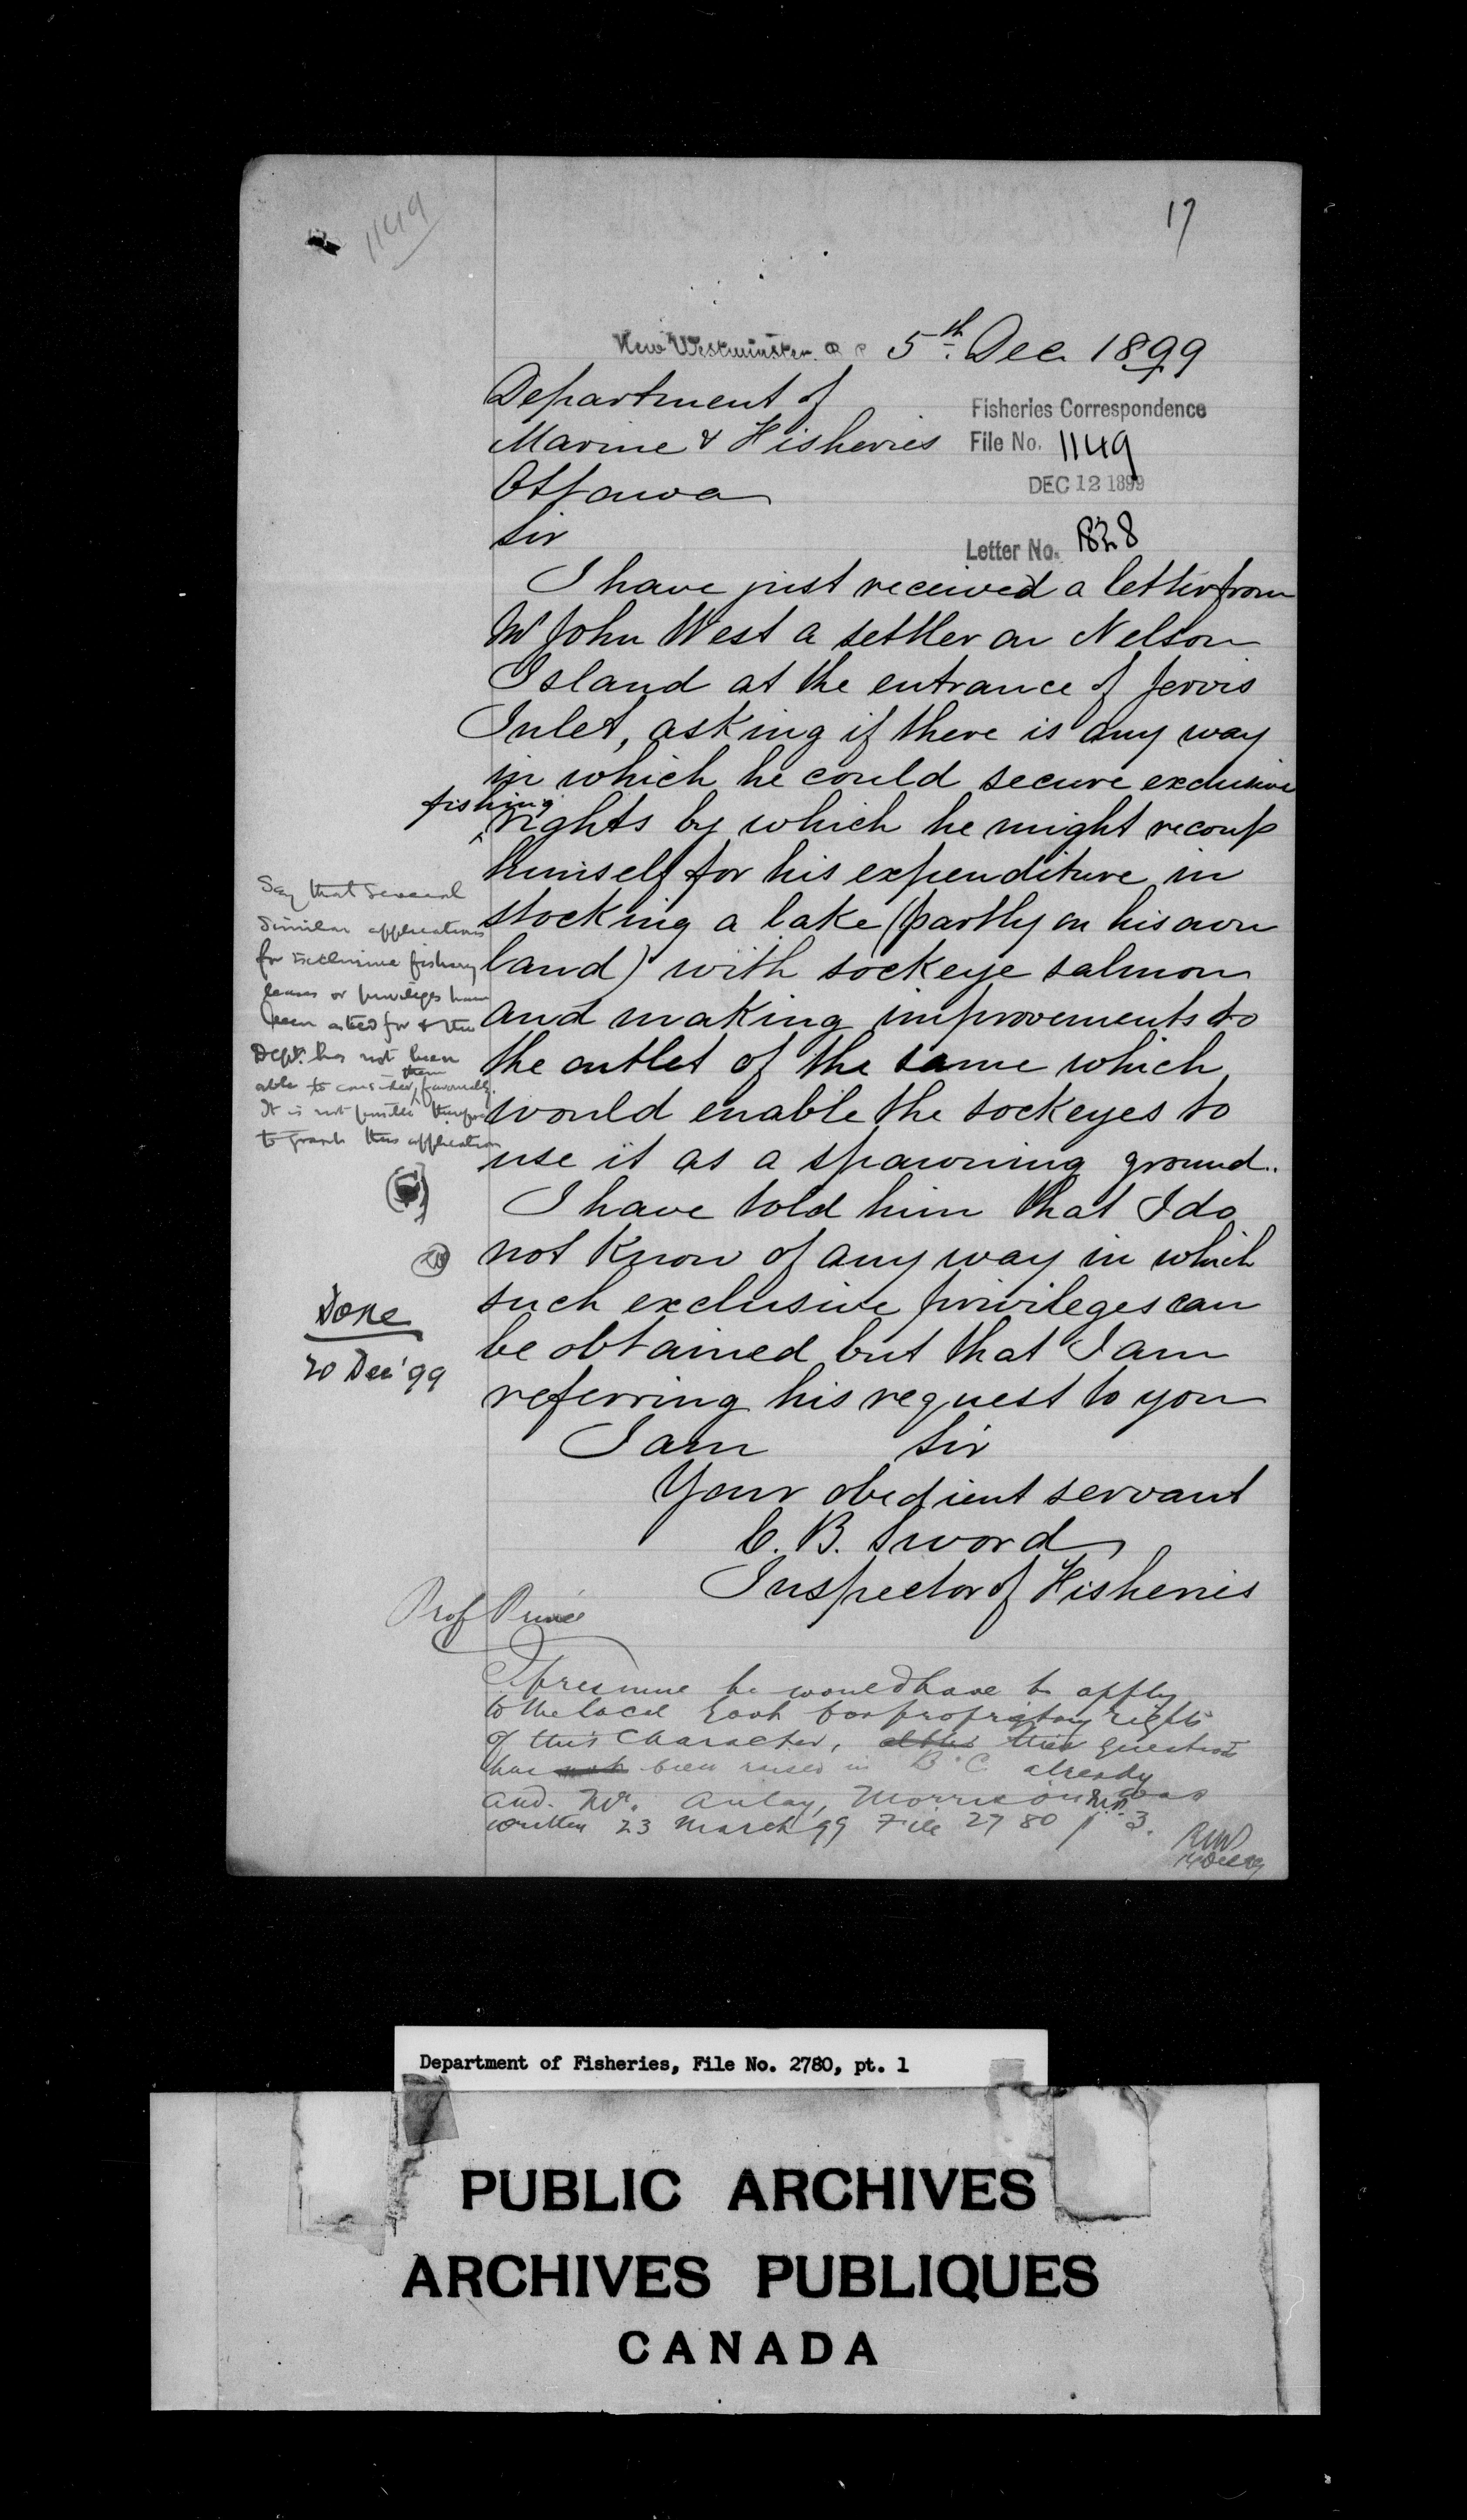 1149
17
New Westminster. B C 5th. Dec 1899
Department of
Marine & Fisheries
Ottawa
Fisheries Correspondence
File No. 1149
DEC 12 1899
Letter No. 1828
Sir
I have just received a letter from
Mr John West a settler on Nelson
Island at the entrance of Jervis
Inlet, asking if there is any way
in which he could secure exclusive
fishing
rights by which he might recoup
himself for his expenditure in
stocking a lake (partly on his own
land) with sockeye salmon
and making improvements to
the outlet of the same which
would enable the sockeyes to
use it as a spawning ground.
I have told him that I do
not know of any way in which
such exclusive privileges can
be obtained but that I am
referring his request to you
I am Sir
Your obedient servant
C. B. Sword
Inspector of Fisheries
Say that several
similar applications
for exclusive fishery
leases or privileges have
been asked for & the
Dept. has not been
able to consider them favourably.
It is not possible therefore
to grant this application
Done
20 Dec '99
Prof Prince
I presume he would have to apply
to the local Govt for proprietary rights
of this character, this question
has been raised in B.C. already
and Mr. Aulay Morrison M.P. was
written 23 March 99 File 2780 p 3.
RNV
14 Dec 99
Department of Fisheries, File No. 2780, pt. 1
PUBLIC ARCHIVES
ARCHIVES PUBLIQUES
CANADA